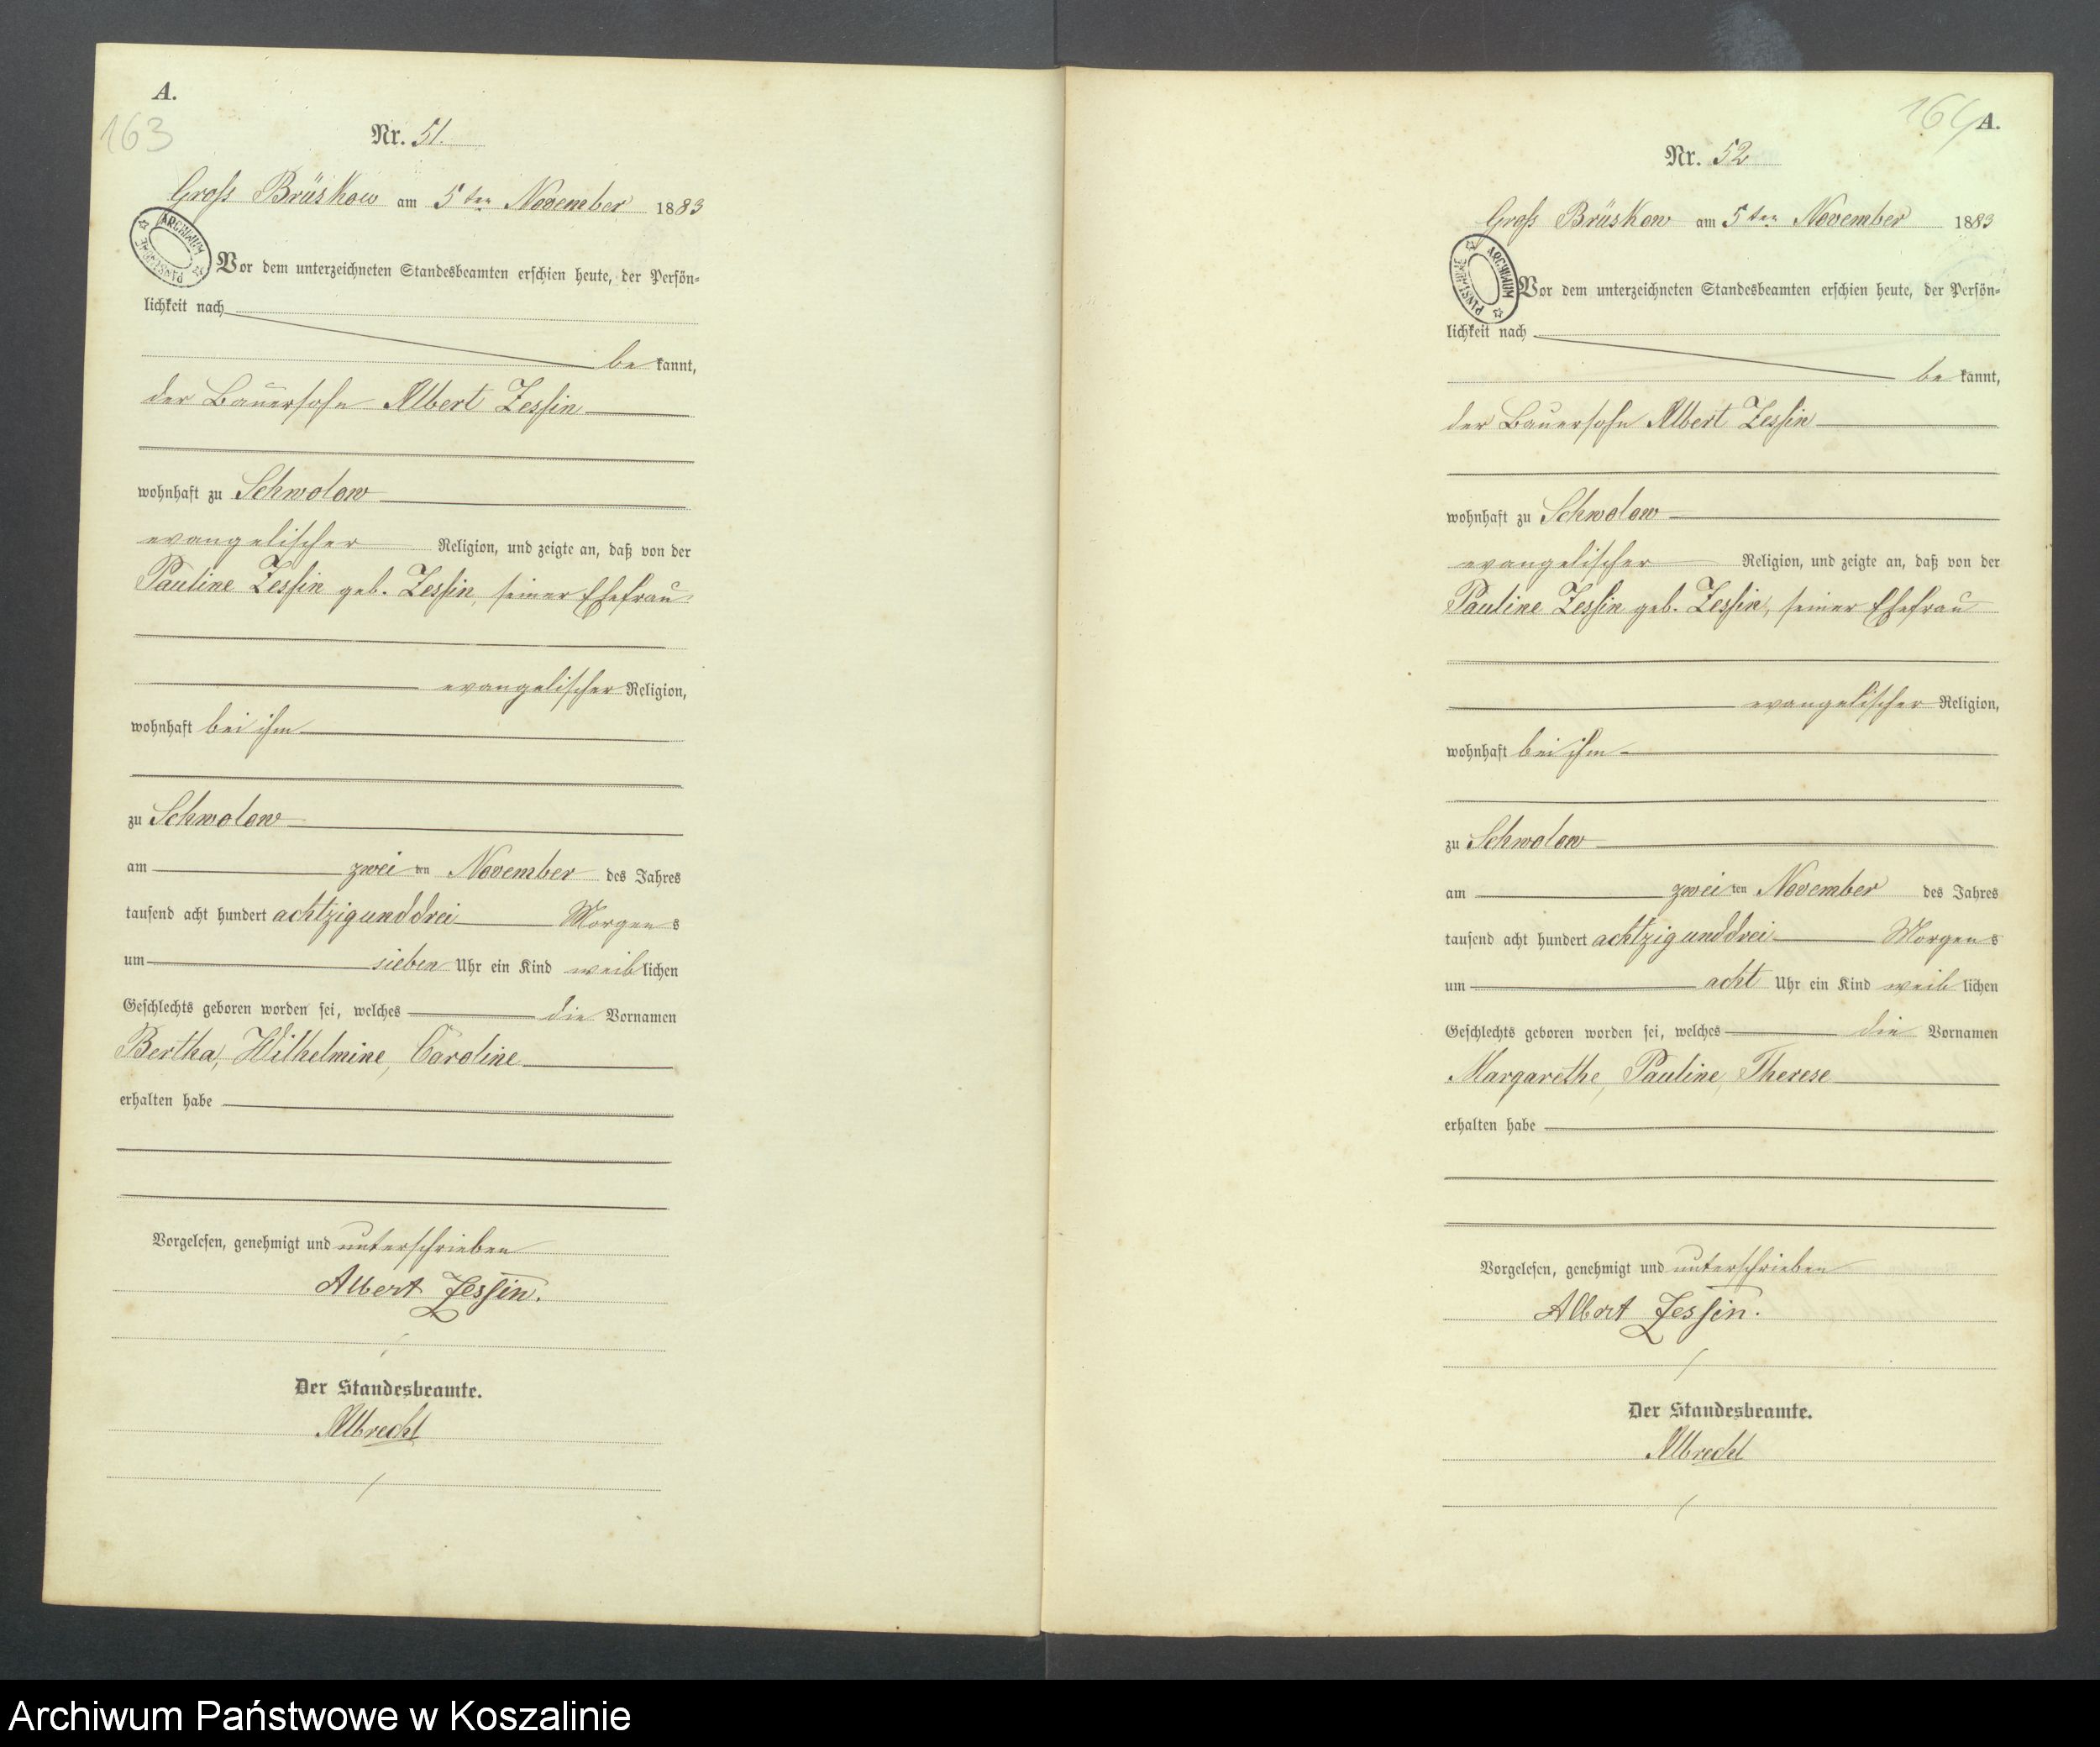 A.
163
Nr. 51.
Groß Brüskow am 5ten November 1883
ARCHIWUM PAŃSTWOWE
Vor dem unterzeichneten Standesbeamten erschien heute, der Persön-
lichkeit nach
be kannt,
der Bauersohn Albert Zessin
wohnhaft zu Schwolow
evangelischer Religion, und zeigte an, daß von der
Pauline Zessin geb. Zessin, seiner Ehefrau
evangelischer Religion,
wohnhaft bei ihm
zu Schwolow
am zwei ten November des Jahres
tausend acht hundert achtzigunddrei Morgens
um sieben Uhr ein Kind weiblichen
Geschlechts geboren worden sei, welches die Vornamen
Bertha, Wilhelmine, Caroline
erhalten habe
Vorgelesen, genehmigt und unterschrieben
Albert Zessin.
Der Standesbeamte.
Albrecht
164
A.
Nr. 52
Groß Brüskow am 5ten November 1883
ARCHIWUM PAŃSTWOWE
Vor dem unterzeichneten Standesbeamten erschien heute, der Persön-
lichkeit nach
be kannt,
der Bauersohn Albert Zessin
wohnhaft zu Schwolow
evangelischer Religion, und zeigte an, daß von der
Pauline Zessin geb. Zessin, seiner Ehefrau
evangelischer Religion,
wohnhaft bei ihm
zu Schwolow
am zwei ten November des Jahres
tausend acht hundert achtzigunddrei Morgens
um acht Uhr ein Kind weiblichen
Geschlechts geboren worden sei, welches die Vornamen
Margarethe, Pauline, Therese
erhalten habe
Vorgelesen, genehmigt und unterschrieben
Albert Zessin.
Der Standesbeamte.
Albrecht
Archiwum Państwowe w Koszalinie